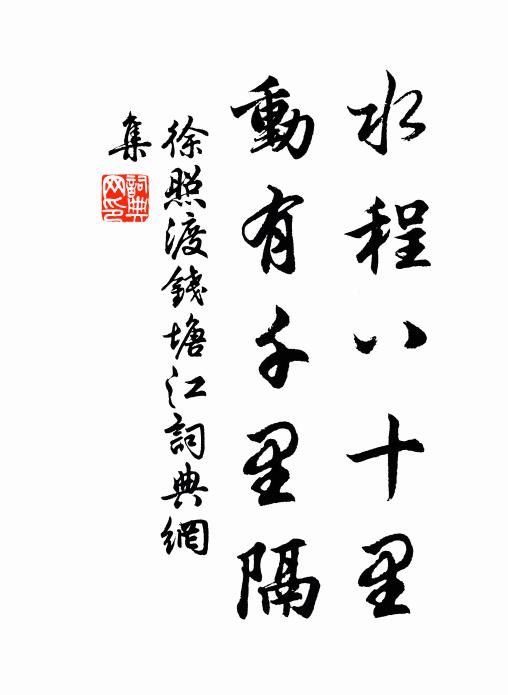 水程八十里
動有千里隔
徐照渡錢塘江詞典網
集
詞典
网印